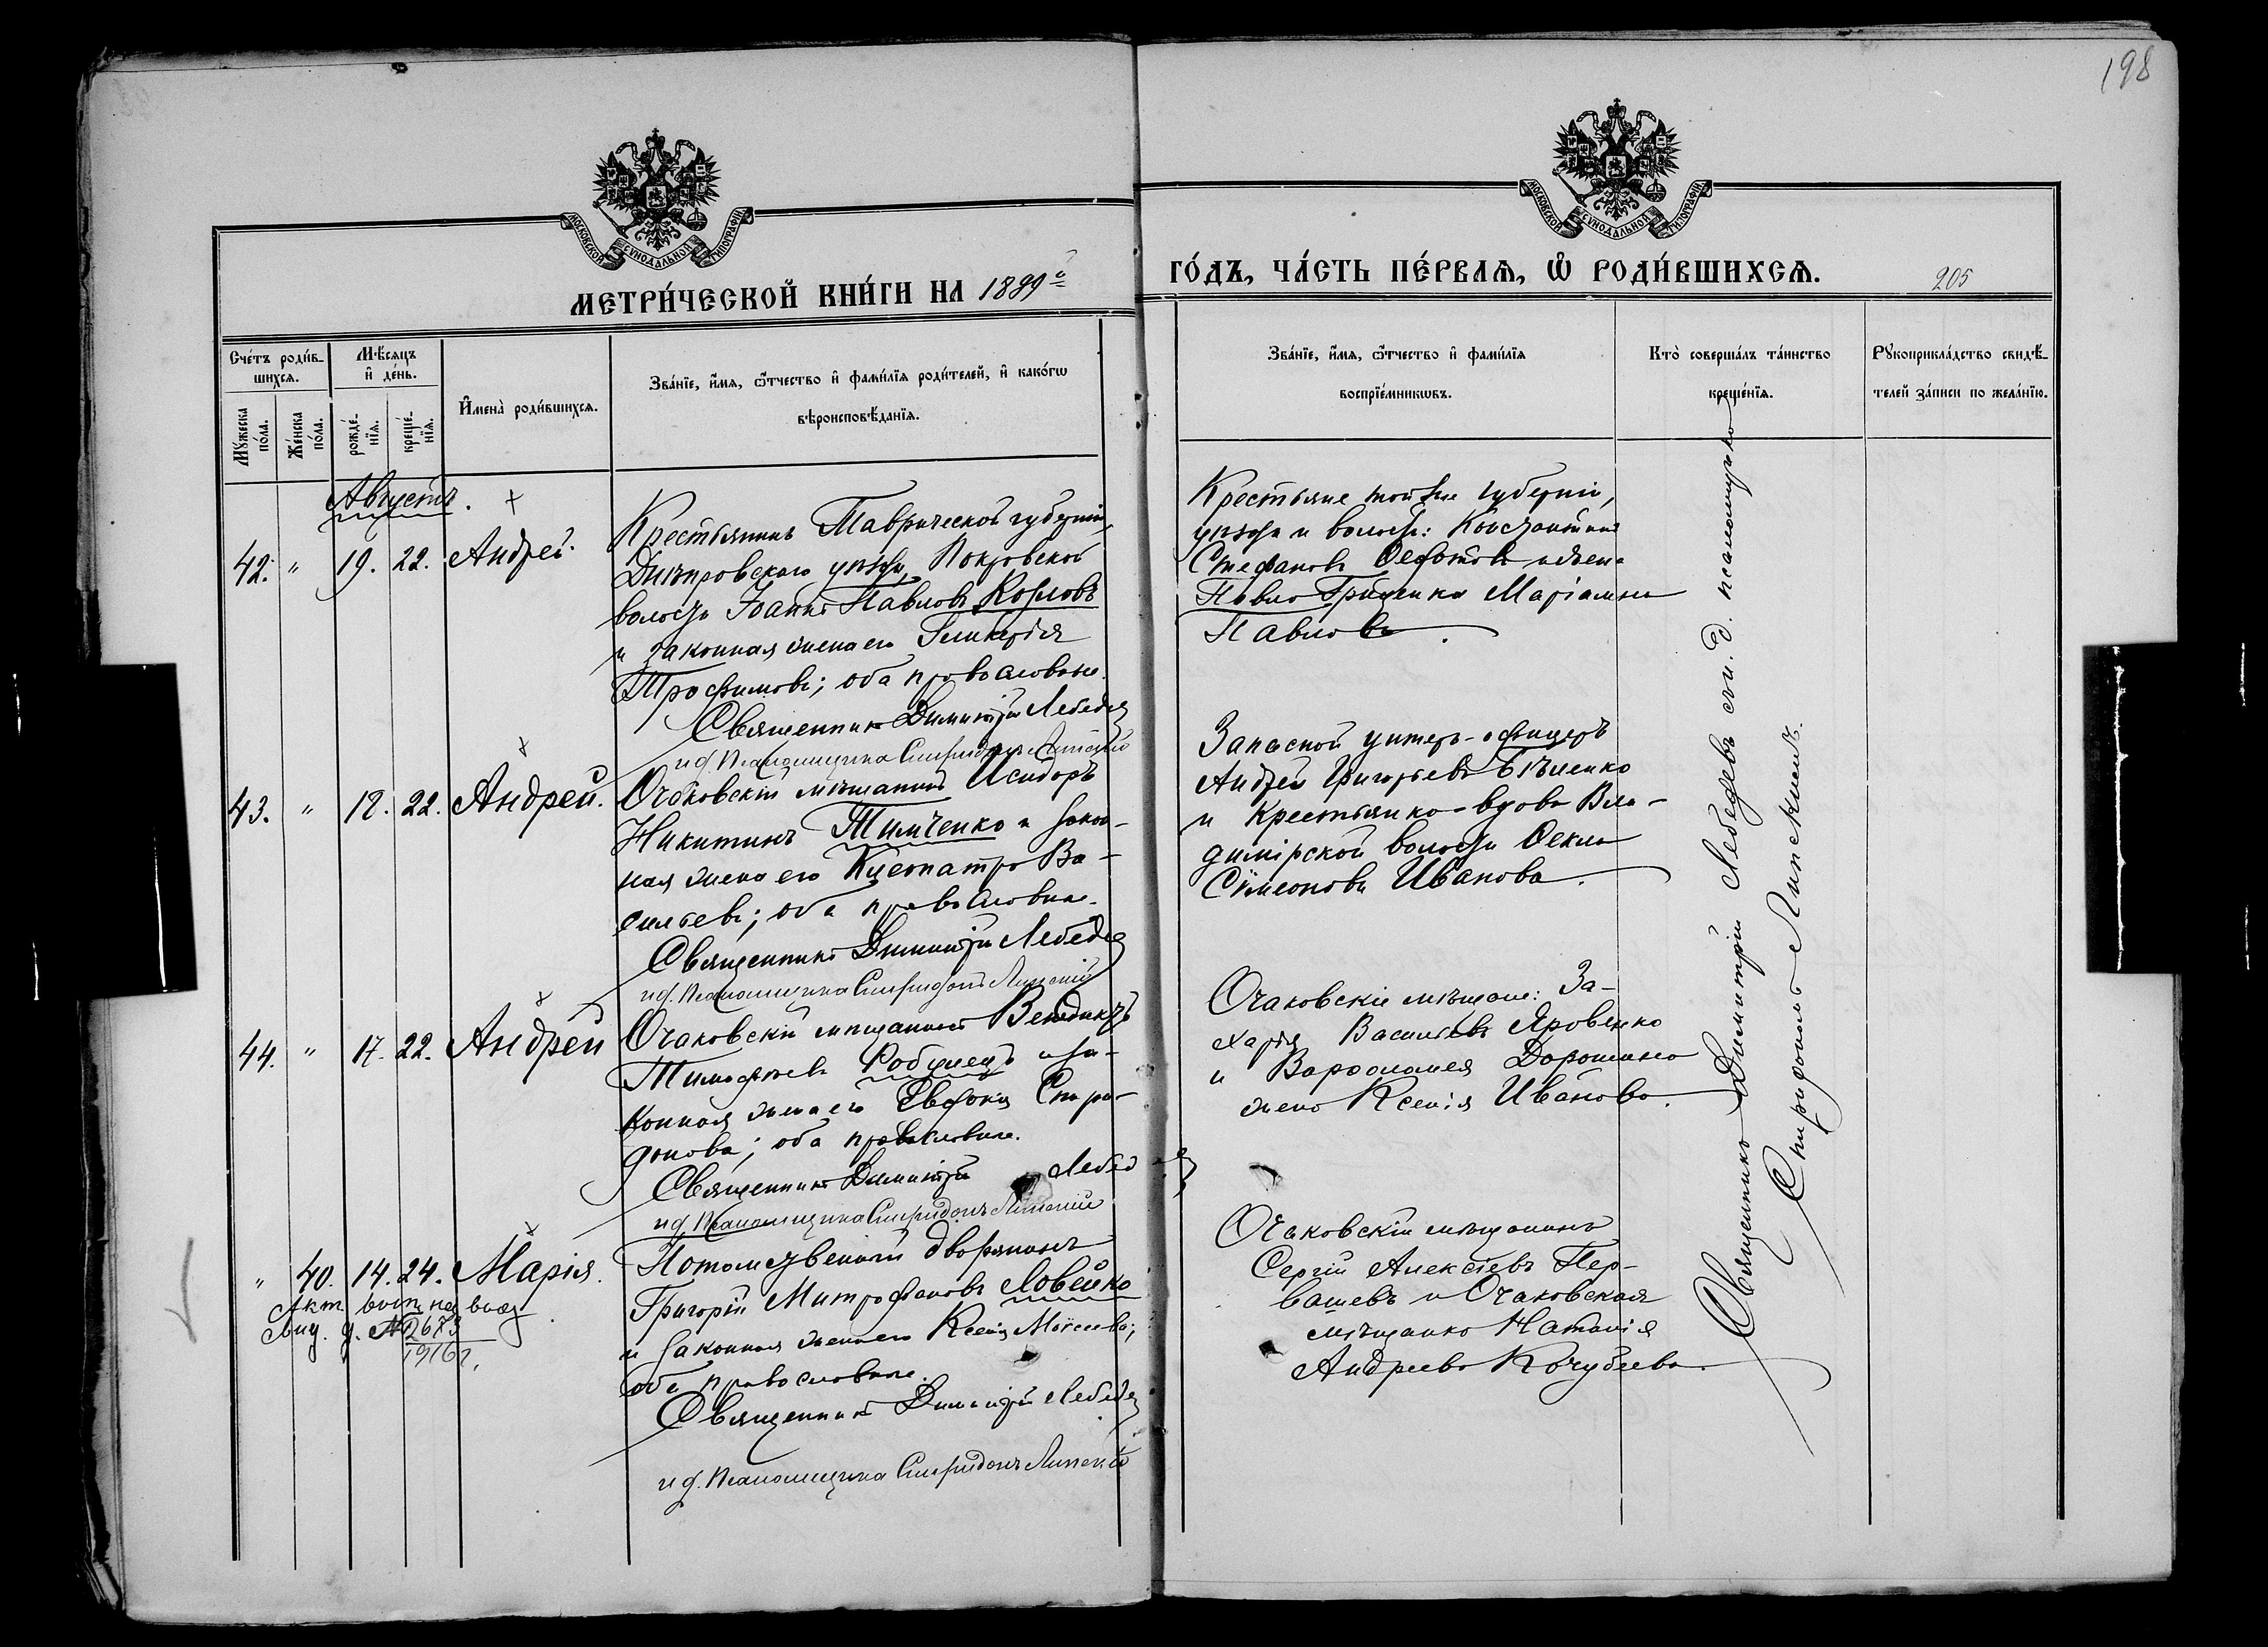 198
МОСКОВСКОЙ СУНОДАЛЬНОЙ ТИПОГРАФІИ
МОСКОВСКОЙ СУНОДАЛЬНОЙ ТИПОГРАФІИ
МЕТРИ́ЧЕСКОЙ КНИ́ГИ НА 1899 о
ГО́ДЪ, ЧА́СТЬ ПЕ́РВАѦ, Ѡ РОДИ́ВШИХСѦ.
205
Сче́тъ роди́в-
шихсѧ.
Мꙋ́жеска по́ла.
Же́нска по́ла.
Мѣ́сѧцъ и҆ де́нь.
рожде́-нїѧ.
креще́-нїѧ.
И҆мена̀ роди́вшихсѧ.
Зва́нїе, и҆́мѧ, ѻ҆́тчество и҆ фами́лїѧ роди́телей, и҆ како́гѡ
вѣроисповѣ́данїѧ.
Зва́нїе, и҆́мѧ, ѻ҆́тчество и҆ фами́лїѧ
воспрїе́мникѡвъ.
Кто̀ соверша́лъ та́инство
креще́нїѧ.
Рꙋкоприкла́дство свидѣ́-
телей за́писи по жела́нїю.
Августъ.
42. " 19. 22. Андрей.
Крестьянинъ Таврической губерніи,
Днѣпровскаго уѣзда, Покровской
волости Іоаннъ Павловъ Козловъ
и законная жена его Гликерія
Трофимова; оба православные.
Священникъ Димитрій Лебедев
и д. Псаломщика Спиридонъ Липскій
Крестьяне той же губерніи,
уѣзда и волости: Константинъ
Стефановъ Федотов и жена
Павла Гриценка Маріамна
Павлова.
43. " 12. 22. Андрей.
Очаковскій мѣщанинъ Исидоръ
Никитинъ Тимченко и закон-
ная жена его Клеопатра Ва-
сильева; оба православные.
Священникъ Димитрій Лебедев
и д. Псаломщика Спиридонъ Липскій
Запасной унтеръ-офицеръ
Андрей Григорьевъ Бѣленко
и крестьянка-вдова Вла-
димірской волости Фекла
Сѵмеонова Иванова.
44. " 17. 22. Андрей
Очаковскій мѣщанинъ Венедиктъ
Тимофеевъ и за-
конная жена его Евдокія Спири-
донова; оба православные.
Священникъ Димитрій Лебедев
и д. Псаломщика Спиридонъ Липскій
Очаковскіе мѣщане: За-
харія Васильевъ Яровенко
и Варфоломея Дорошенко
жена Ксенія Иванова.
" 40. 14. 24. Марія.
Потомственный дворянинъ
Григорій Митрофановъ Ловейко
и законная жена его Ксенія Моѵсеева;
оба православные.
Священникъ Димитрій Лебедев
и д. Псаломщика Спиридонъ Липскій
Акт
№ 2673
1916 г.
Очаковскій мѣщанинъ
Сергій Алексѣевъ Пер-
вашевъ и Очаковская
мѣщанка Наталія
Андреева Кочубеева.
Священникъ Димитрій Лебедевъ съ и. д. псаломщика
Спиридономъ Липскимъ.